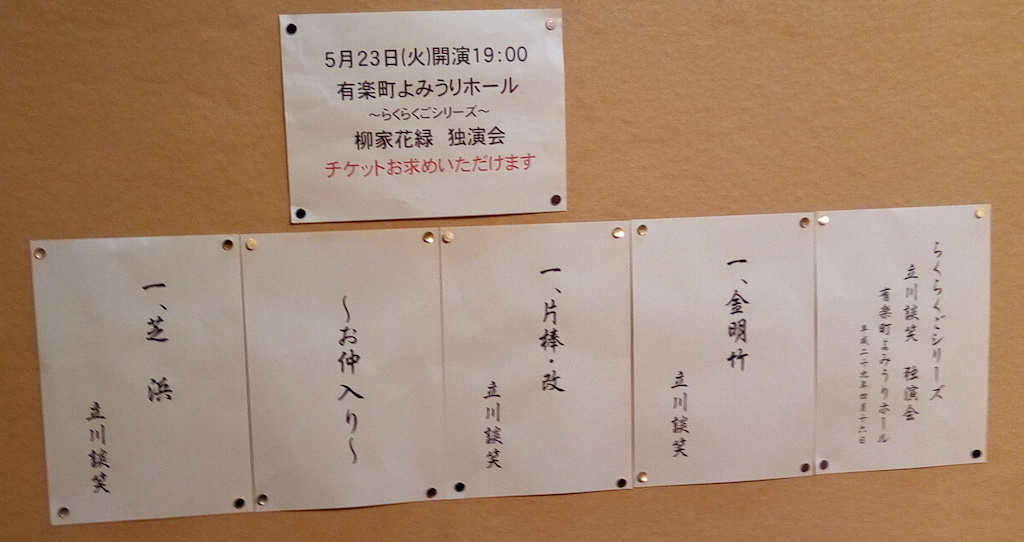 5月23日(火)開演19:00
有楽町よみうりホール
～らくらくごシリーズ～
柳家花緑 独演会
チケットお求めいただけます
らくらくごシリーズ
立川談笑 独演会
有楽町よみうりホール
平成二十九年四月十六日
一、金明竹
立川談笑
一、片棒・改
立川談笑
～お仲入り～
一、芝 浜
立川談笑